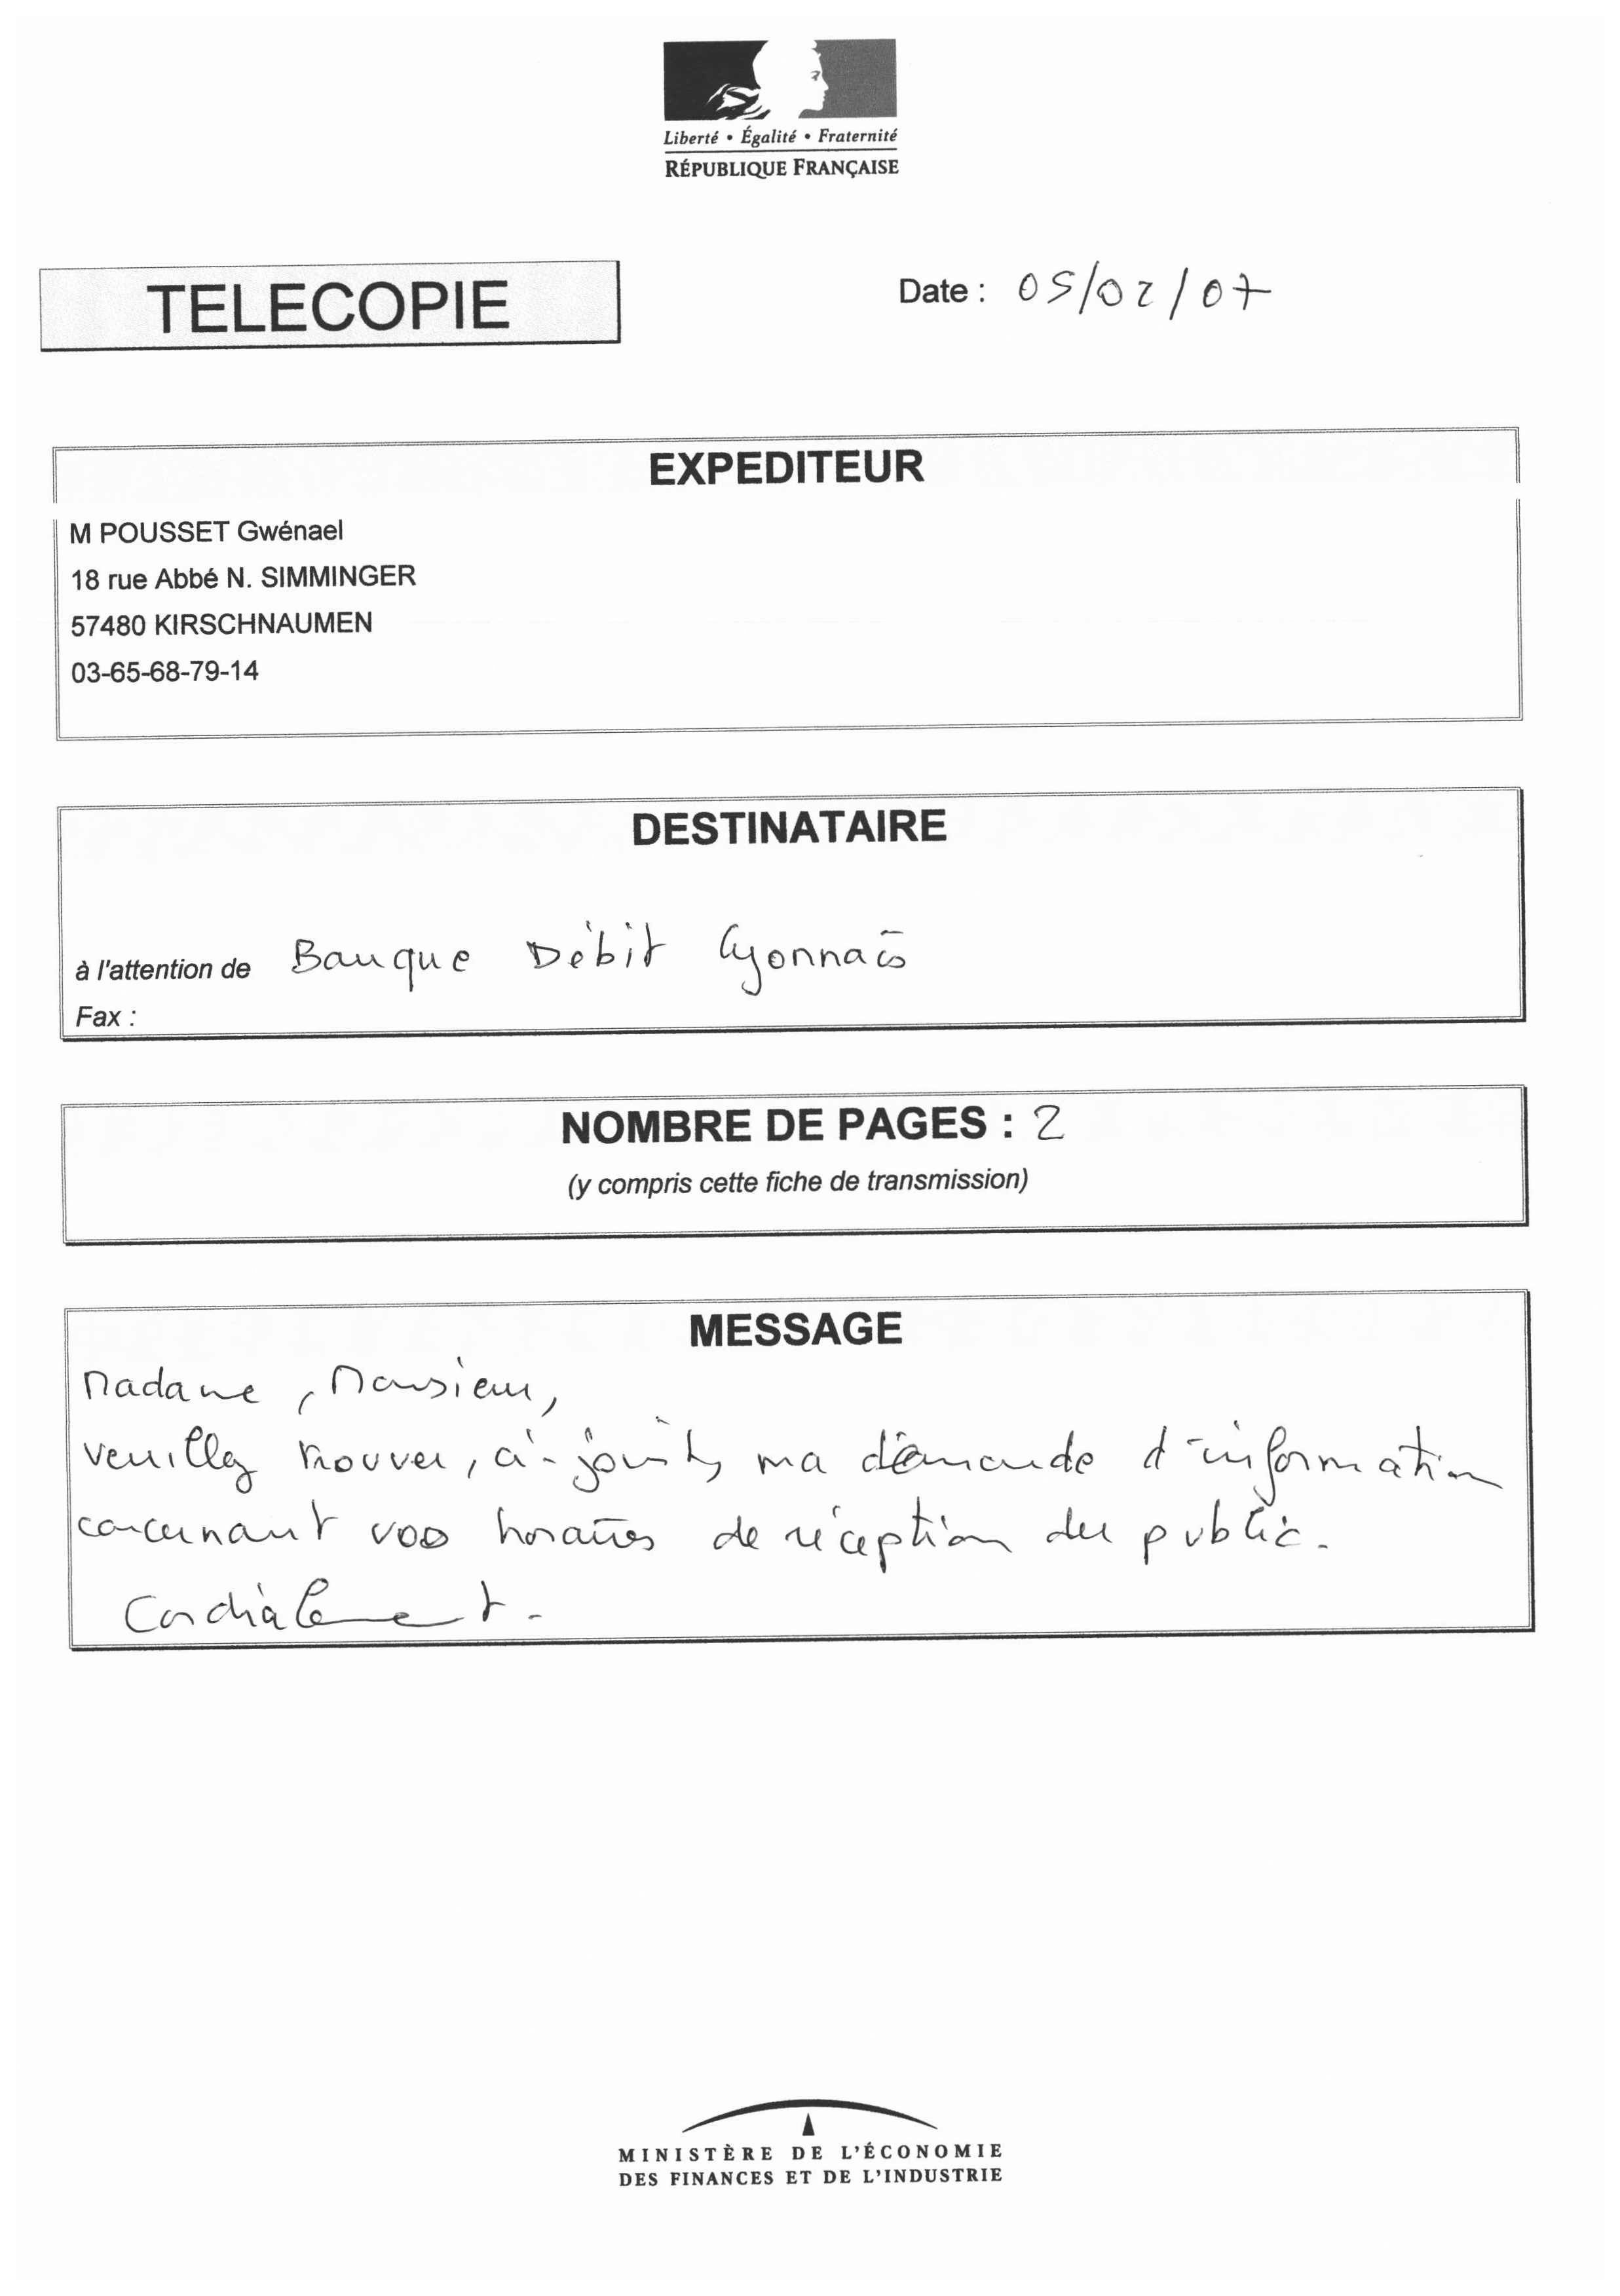 Liberté • Égalité • Fraternité
RÉPUBLIQUE FRANÇAISE
TELECOPIE
Date : 05/02/07
EXPEDITEUR
M POUSSET Gwénael
18 rue Abbé N. SIMMINGER
57480 KIRSCHNAUMEN
03-65-68-79-14
DESTINATAIRE
à l'attention de Banque Débit Lyonnais
Fax :
NOMBRE DE PAGES : 2
(y compris cette fiche de transmission)
MESSAGE
Madame, Monsieur,
veuillez trouver, ci-joint, ma demande d'information
concernant vos horaires de réception du public.
Cordialement.
MINISTÈRE DE L'ÉCONOMIE
DES FINANCES ET DE L'INDUSTRIE